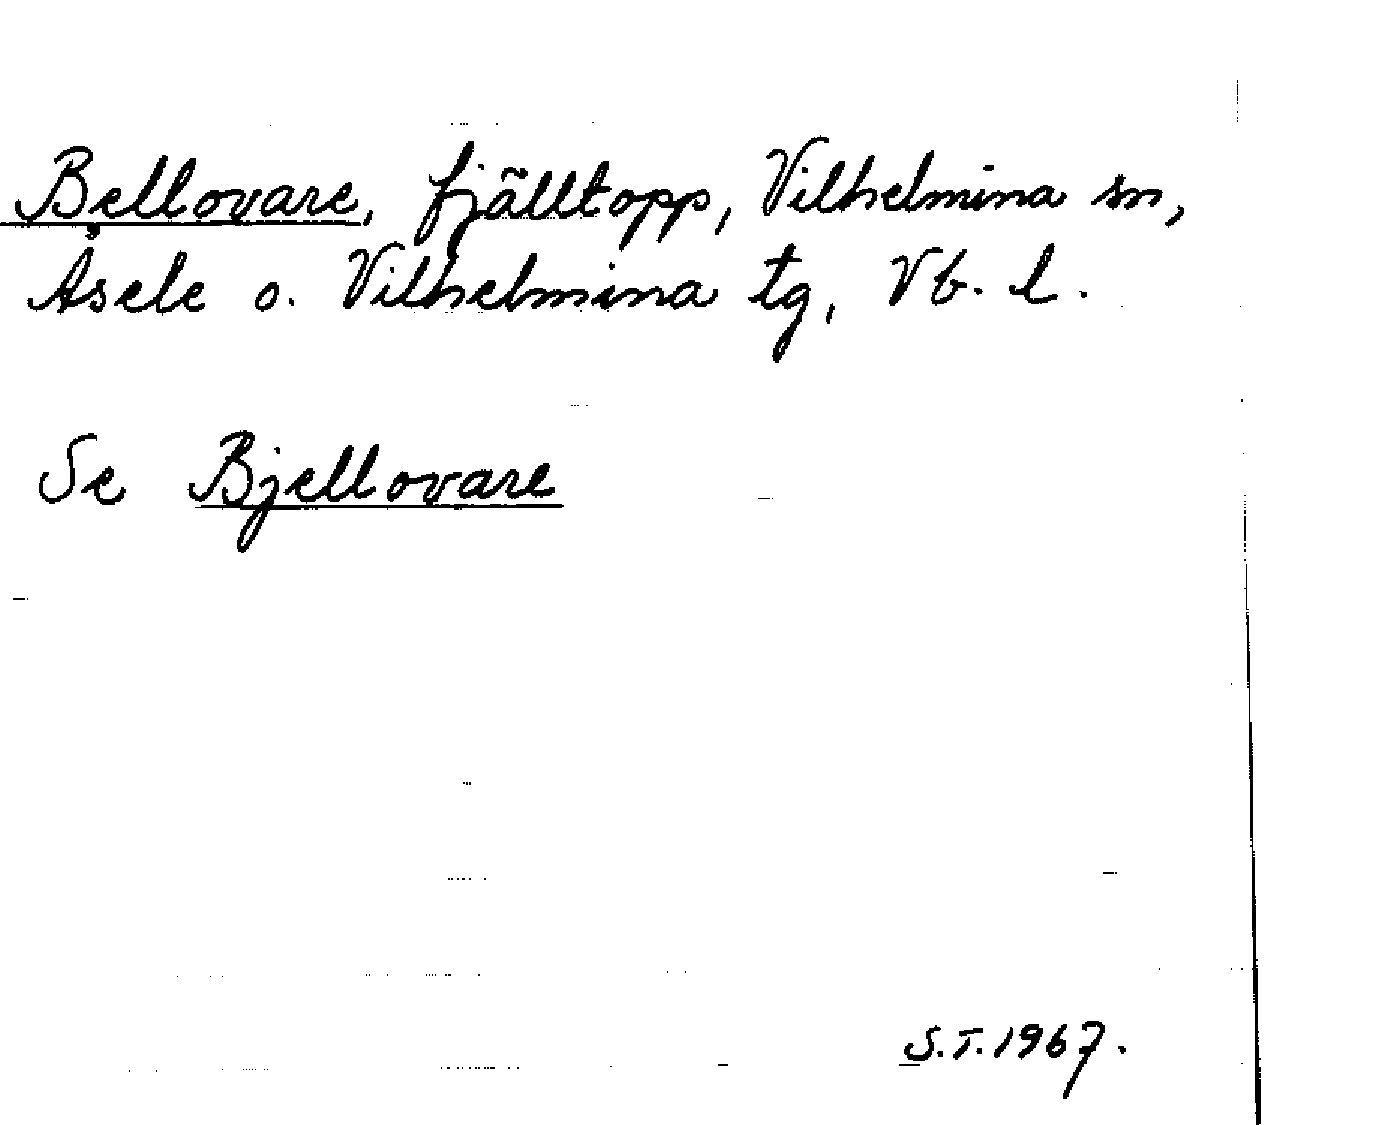 Bellovare, fjälltopp, Vilhelmina sn,
Åsele o. Vilhelmina tg, Vb. l.
Se Bjellovare
S.T. 1967.